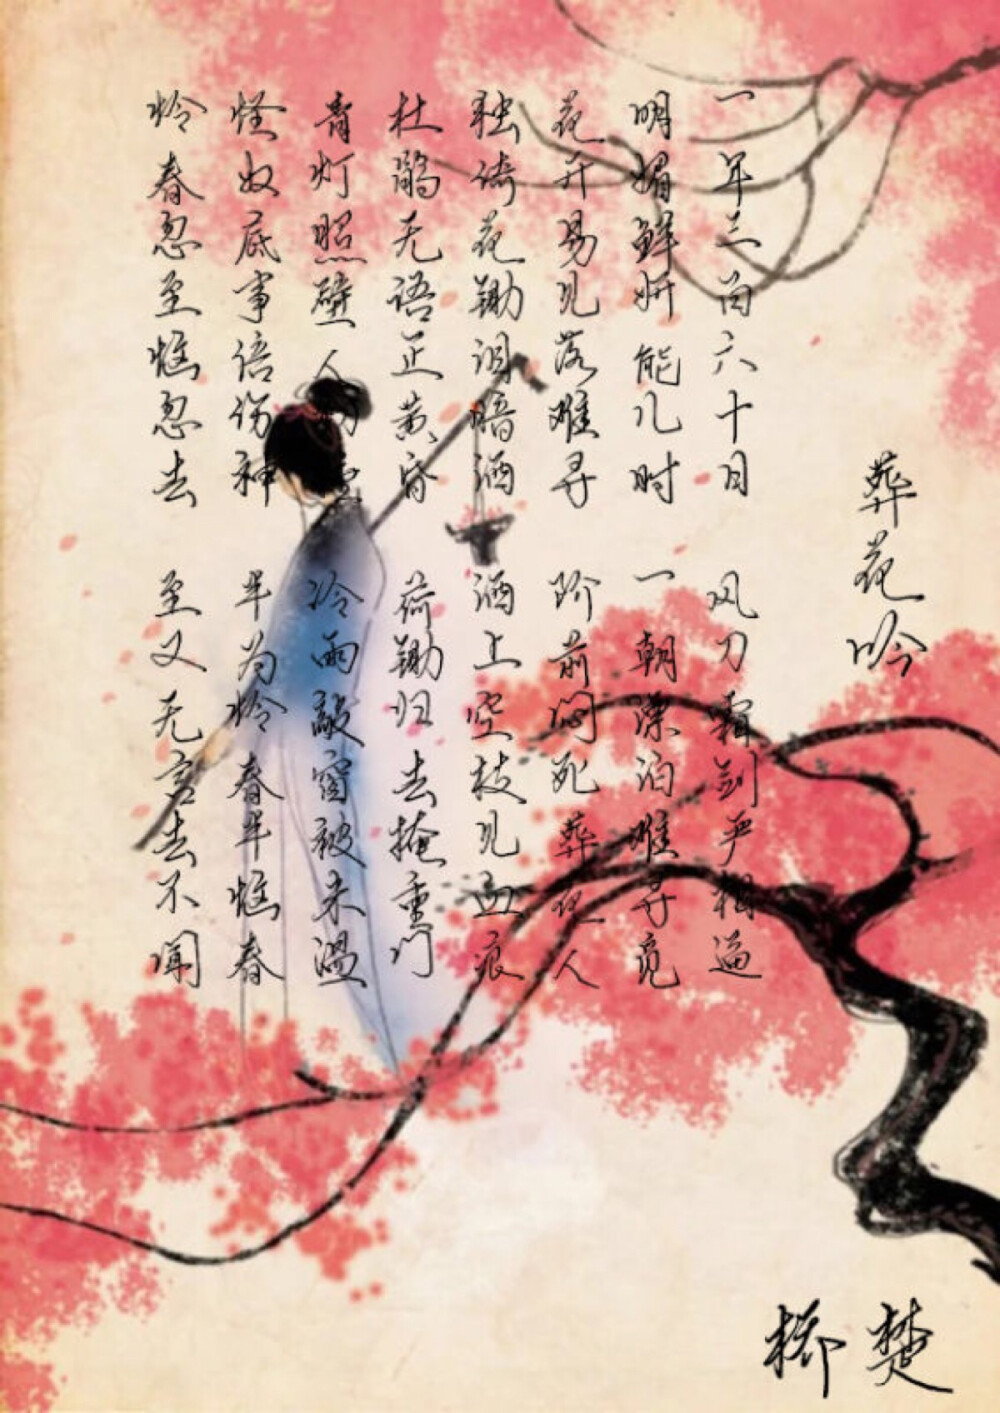 葬花吟
一年三百六十日 风刀霜剑严相逼
明媚鲜妍能几时 一朝漂泊难寻觅
花开易见落难寻 阶前闷死葬花人
独倚花锄泪暗洒 洒上空枝见血痕
杜鹃无语正黄昏 荷锄归去掩重门
青灯照壁人初睡 冷雨敲窗被未温
怪奴底事倍伤神 半为怜春半恼春
怜春忽至恼忽去 至又无言去不闻
楚